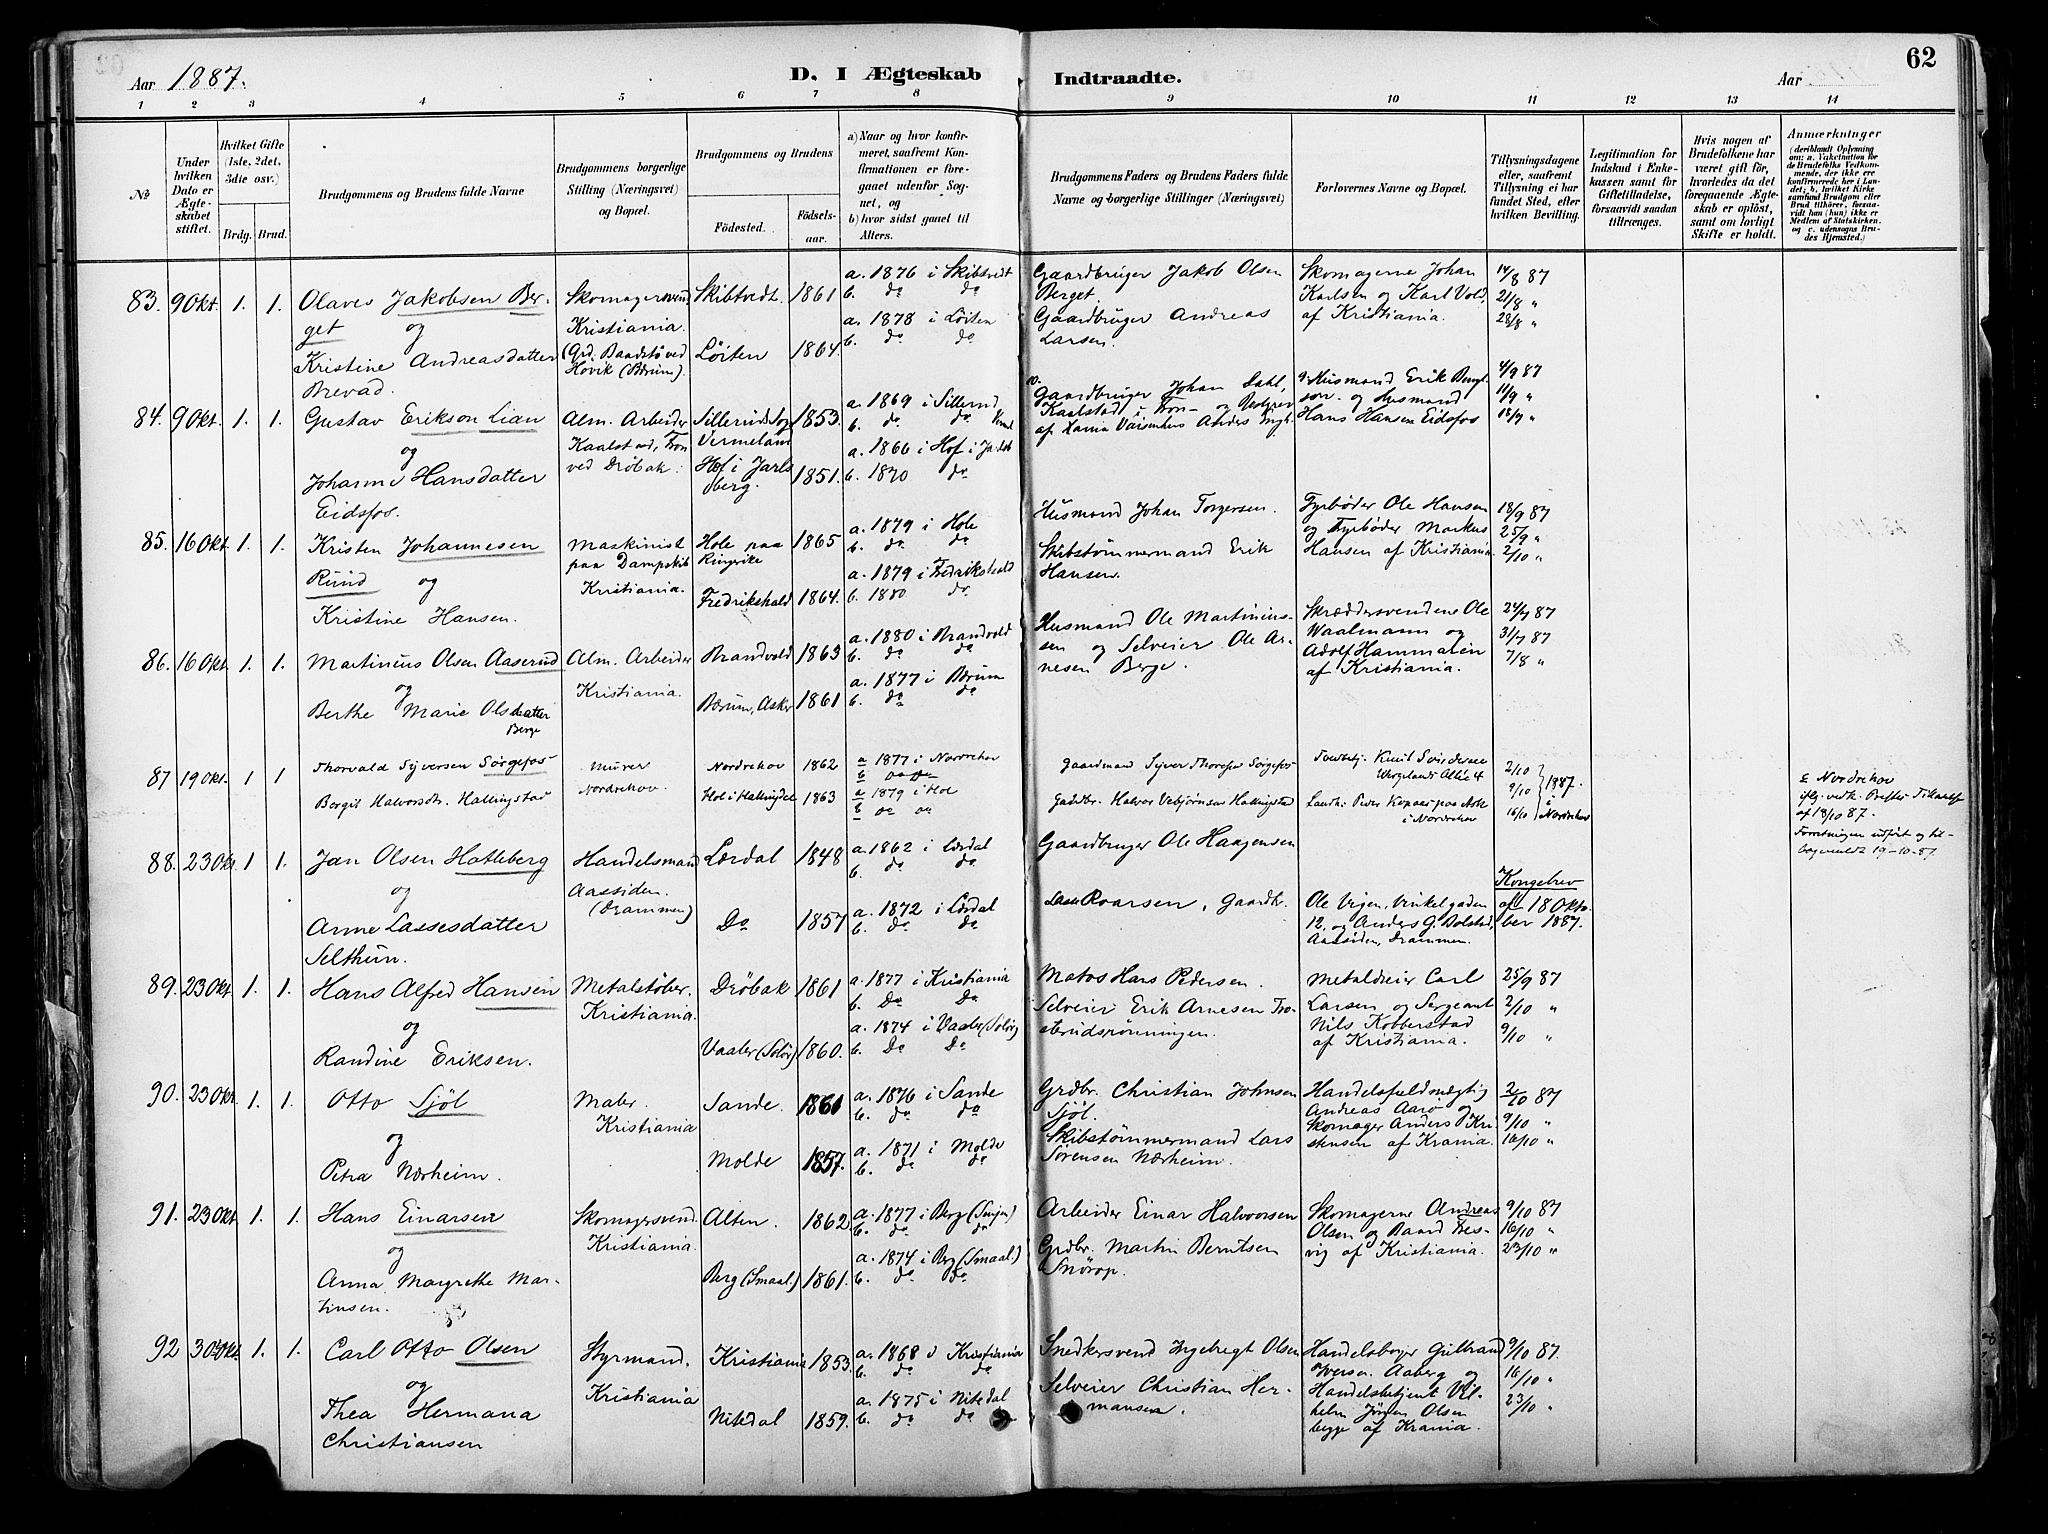 62
Aar 1887.
D. I Ægteskab Indtraadte.
Aar
1 2 3 4 5 6 7 8 9 10 11 12 13 14
No
Under hvilken Dato er Ægteskabet stiftet.
Hvilket Gifte (1ste, 2det, 3die osv.)
Brdg. Brud.
Brudgommens og Brudens fulde Navne
Brudgommens borgerlige Stilling (Næringsvei) og Bopæl.
Brudgommens og Brudens
Fødested.
Fødselsaar.
a) Naar og hvor konfirmeret, saafremt Konfirmationen er foregaaet udenfor Sognet, og
b) hvor sidst gaaet til Alters.
Brudgommens Faders og Brudens Faders fulde Navne og borgerlige Stillinger (Næringsvei)
Forlovernes Navne og Bopæl.
Tillysningsdagene eller, saafremt Tillysning ei har fundet Sted, efter hvilken Bevilling.
Legitimation for Indskud i Enkekassen samt for Giftetilladelse, forsaavidt saadan tiltrænges.
Hvis nogen af Brudefolkene har været gift før, hvorledes da det foregaaende Ægteskab er opløst, samt om lovligt Skifte er holdt.
Anmærkninger (deriblandt Oplysning om: a. Vakcination for de Brudefolks Vedkommende, der ikke ere konfirmerede her i Landet; b. hvilket Kirkesamfund Brudgom eller Brud tilhører, forsaavidt han (hun) ikke er Medlem af Statskirken. og c. udensogns Brudes Hjemsted.)
83. 9 Okt. 1. 1. Olaves Jakobsen Berget og
Kristine Andreasdatter
Brevad.
Skomagersvend
Kristiania.
(Grd. Baadstø ved
Høvik (Bærum).
Skibtvedt. 1861
Løiten 1864.
a. 1876 i Skibtvedt
b. do do
a. 1878 i Løiten
b. do do
Gaardbruger Jakob Olsen
Berget.
Gaardbruger Andreas
Larsen.
Skomagerne Johan
Karlsen og Karl Vold,
af Kristiania.
14/8 87
21/8 "
28/8 "
84. 9 Okt. 1. 1. Gustav Erikson Lian
og
Johanne Hansdatter
Eidsfos.
Alm. Arbeider
Kaalstad, Fron
ved Drøbak.
Sillerud Sog
Vermeland 1853.
Hof i Jarlsberg. 1851.
a. 1869 i Sillerud
b. do do
a. 1866 i Hof i Jarlsb
b. 1870 do
Gaardbruger Johan Dahl,
Kaalstad i Fron
Husmand Erik Bengtson og Husmand
Hans Hansen Eidsfos
4/9 87
11/9 "
18/9 "
85. 16 Okt. 1. 1. Kristen Johannesen
Rund og
Kristine Hansen.
Maskinist
paa Dampskib
Kristiania.
Hole paa
Ringerike 1865
Fredrikshald 1864.
a. 1879 i Hole
b. do do
a. 1879 i Fredrikshald
b. 1880 do
Husmand Johan Torgersen.
Skibstømmermand Erik
Hansen.
Fyrbøder Ole Hansen
og Fyrbøder Markus
Hansen af Kristiania
18/9 87
25/9 "
2/10 "
86. 16 Okt. 1. 1. Martinius Olsen Aaserud
og
Berthe Marie Olsdatter
Berge
Alm. Arbeider
Kristiania.
Brandvold 1863
Bærum, Asker 1861
a. 1880 i Brandvold
b. do do
a. 1877 i Bærum
b. do do
Husmand Ole Martiniussen og Selveier Ole Arnesen Berge.
Skræddersvendene Ole
Waalmann og
Adolf Hammalin
af Kristiania.
24/7 87
31/7 87
7/8 "
87 19 Okt. 1 1 Thorvald Syversen Sørgefos
Bergit Halvorsdr. Hallingstad
Murer
Nordrehov.
Nordrehov 1862
Hol i Hallingdal 1863
a 1877 i Nordrehov
a 1879 i Hol
b do do
Gaardmand Syver Thoresen Sørgefos
Gaardbr. Halvor Vebjørnsen Hallingstad
Wergelands Allée 4
i Nordrehov
2/10
9/10
16/10
1887. i Nordrehov
c Nordrehov
af 18/10 87.
Forretningen udført og tilbagemeldt 19-10-87.
88. 23 Okt. 1 1. Jan Olsen Hatleberg
og
Anne Lassesdatter
Selthun.
Handelsmand
Aassiden.
(Drammen)
Lærdal 1848
Do 1857
a. 1862 i Lærdal
b. do do
a. 1872 i Lærdal
b. do do
Gaardbruger Ole Haagensen
Lasse Roarsen, Gaardbr.
Ole Vigen, Vinkelgaden
12, og Anders G. Bolstad,
Aassiden, Drammen.
Kongebrev
af 18 Oktober 1887.
89. 23 Okt. 1. 1. Hans Alfred Hansen
og
Randine Eriksen.
Metalstøber,
Kristiania.
Drøbak 1861
Vaaler (Solør) 1860.
a. 1877 i Kristiania
b. Do Do
a. 1874 i Vaaler (Solør)
b. Do Do
Matos Hans Pedersen.
Selveier Erik Arnesen
Metaldreier Carl
Larsen og Sergeant
Nils Kobberstad
af Kristiania.
25/9 87
2/10 "
9/10 "
90. 23 Okt. 1. 1. Otto Sjöl
og
Petra Nærheim.
Maler.
Kristiania
Sande. 1860
Molde 1857.
a. 1876 i Sande
b. do do
a. 1871 i Molde
b. do do
Grdbr. Christian Johnsen
Sjöl.
Skibstømmermand Lars
Sørensen Nærheim.
Handelsfuldmægtig
Andreas Aarø og
Skomager Anders Kristensen af Krania.
2/10 87
9/10 "
16/10 "
91. 23 Okt. 1. 1. Hans Einarsen
og
Anna Margrethe Martinsen.
Skomagersvend.
Kristiania.
Alten. 1862
Berg (Smaal.) 1861.
a. 1877 i Berg (Senjen)
b. do do
a. 1874 i Berg (Smaal.)
b. do do
Arbeider Einar Halvorsen
Grdbr. Martin Berntsen
Snørop.
Skomagerne Andreas
Olsen og Baard Tresvig af Kristiania.
9/10 87
16/10 "
23/10 "
92 30 Okt. 1. 1. Carl Otto Olsen
og
Thea Hermana
Christiansen
Styrmand.
Kristiania
Kristiania 1853.
Nitedal 1859.
a. 1868 i Kristiania
b. do do
a. 1875 i Nitedal
b. do do
Snedkersvend Ingebregt Olsen
Selveier Christian Hermansen.
Handelsborger Gulbrand
Iversen Aaberg og
Handelsbetjent Vilhelm Jørgen Olsen
begge af Krania.
9/10 87.
16/10 "
23/10 "